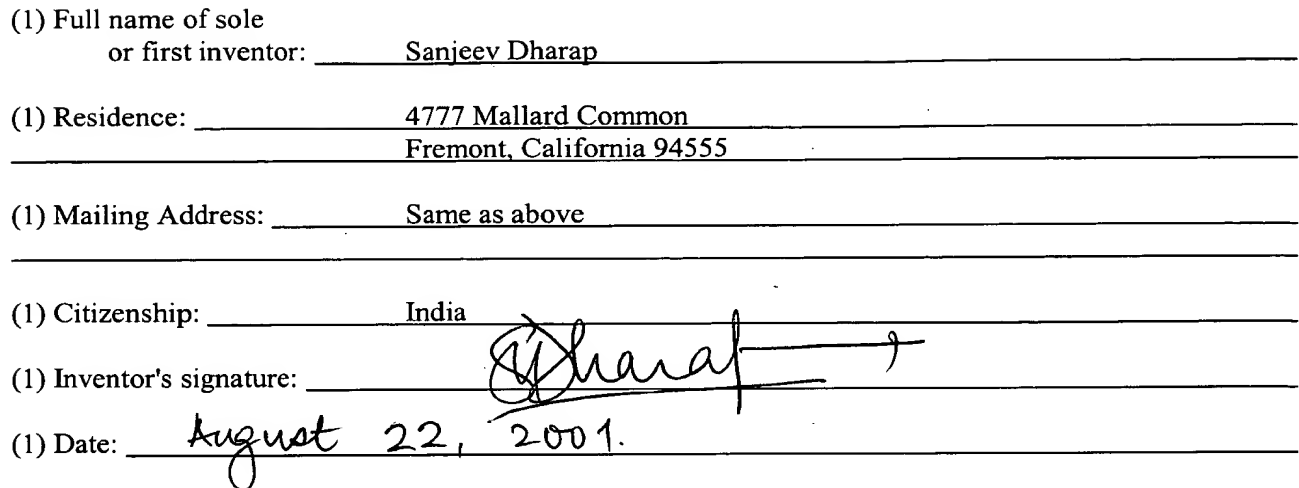 (1) Full name of sole
or first inventor: Sanjeev Dharap
(1) Residence: 4777 Mallard Common
Fremont, California 94555
(1) Mailing Address: Same as above
(1) Citizenship: India
(1) Inventor's signature: SDharap
(1) Date: August 22, 2001.